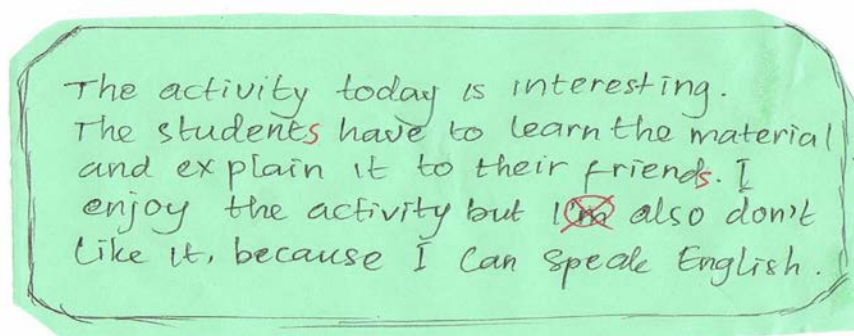 The activity today is interesting.
The students have to learn the material
and explain it to their friends. I
enjoy the activity but I'm also don't
like it, because I can speak English.